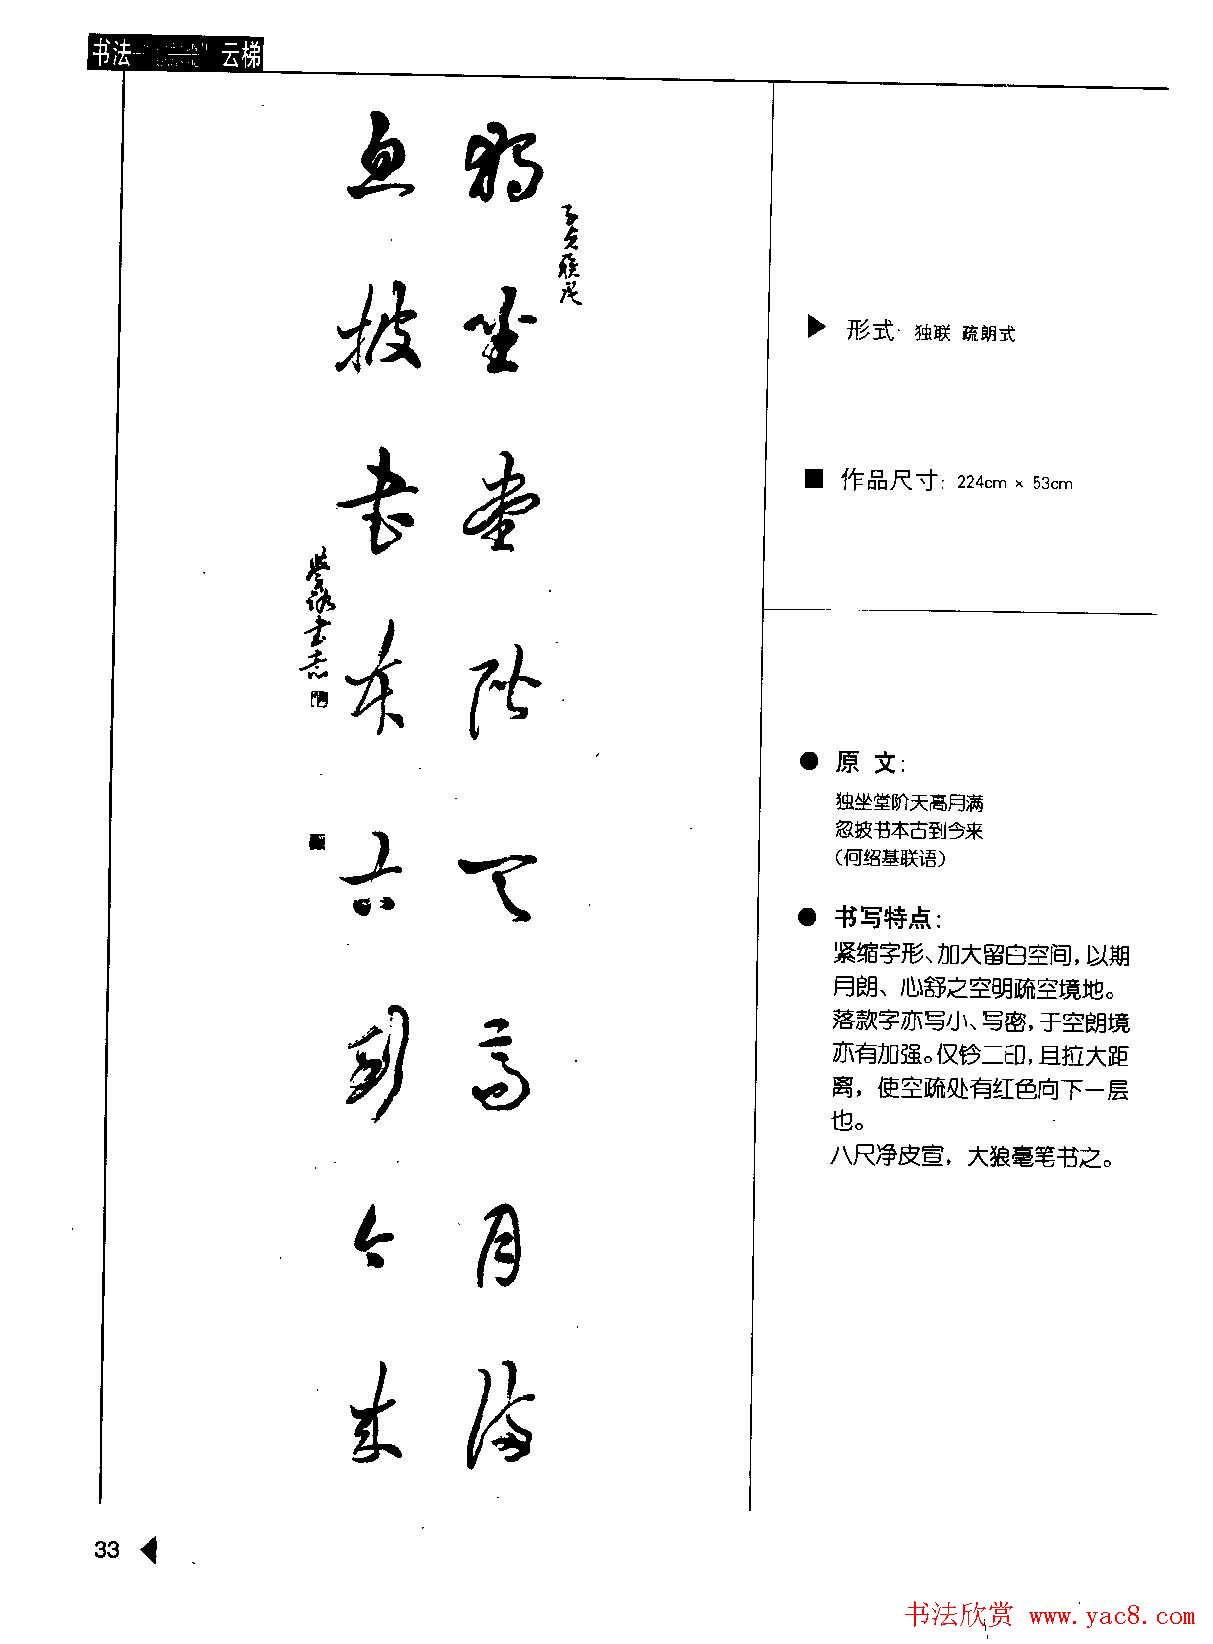 书法 云梯
独坐堂阶天高月满
忽披书本古到今来
形式· 独联 疏朗式
作品尺寸: 224cm × 53cm
原 文:
独坐堂阶天高月满
忽披书本古到今来
(何绍基联语)
书写特点:
紧缩字形、加大留白空间, 以期
月朗、心舒之空明疏空境地。
落款字亦写小、写密, 于空朗境
亦有加强。仅钤二印, 且拉大距
离, 使空疏处有红色向下一层
也。
八尺净皮宣, 大狼毫笔书之。
33
书法欣赏 www.yac8.com